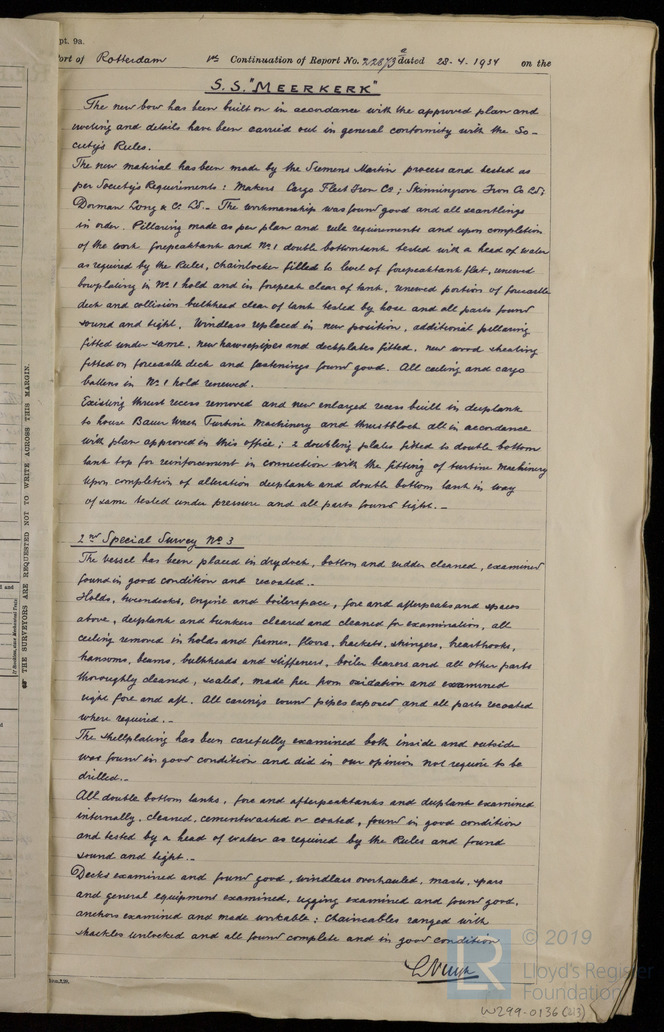 pt. 9a.
ort of Rotterdam Continuation of Report No. 22873a dated 28.4.1934 on the
S.S. "MEERKERK"
The new bow has been built on in accordance with the approved plan and
and details have been carried out in general conformity with the So-
ciety's Rules.
The new material has been made by the Siemens Martin process and tested as
per Society's Requirements: Makers Cargo Fleet Iron Co; Skinningrove Iron Co Ld;
Dorman Long & Co. Ld. - The workmanship was found good and all scantlings
in order. Pillaring made as per plan and rule requirements and upon completion
of the work forepeaktank and No. 1 double bottomtank tested with a head of water
as required by the Rules, chainlocker filled to level of forepeaktank flat, renewed
bowplating in No. 1 hold and in forepeak clear of tank, renewed portion of forecastle
deck and collision bulkhead clear of tank tested by hose and all parts found
sound and tight. Windlass replaced in new position, additional pillaring
fitted under same, new hawsepipes and deckplates fitted, new wood sheating
fitted on forecastle deck and fastenings found good. All ceiling and cargo
battens in No. 1 hold renewed.
Existing thrust recess removed and new enlarged recess built in deeptank
to house Bauer Wach Turbine Machinery and thrustblock all in accordance
with plan approved in this office; 2 doubling plates fitted to double bottom
tank top for reinforcement in connection with the fitting of turbine machinery
Upon completion of alteration deeptank and double bottom tank in way
of same tested under pressure and all parts found tight. -
2nd Special Survey No. 3
The vessel has been placed in drydock, bottom and rudder cleaned, examined
found in good condition and recoated. -
Holds, tweendecks, engine and boilerspace, fore and afterpeaks and spaces
above, deeptank and bunkers cleared and cleaned for examination, all
ceiling removed in holds and frames, floors, brackets, stringers, breasthooks,
transoms, beams, bulkheads and stiffeners, boiler bearers and all other parts
thoroughly cleaned, scaled, made free from oxidation and examined
right fore and aft. All casings round pipes exposed and all parts recoated
where required. -
The shellplating has been carefully examined both inside and outside
was found in good condition and did in our opinion not require to be
drilled. -
All double bottom tanks, fore and afterpeaktanks and deeptank examined
internally, cleaned, cementwashed or coated, found in good condition
and tested by a head of water as required by the Rules and found
sound and tight. -
Decks examined and found good, windlass overhauled, masts, spars
and general equipment examined, rigging examined and found good,
anchors examined and made workable; chaincables ranged with
shackles unlocked and all found complete and in good condition
THE SURVEYORS ARE REQUESTED NOT TO WRITE ACROSS THIS MARGIN.
© 2019
LR
Lloyd's Register
Foundation
W299-0136 (2/3)